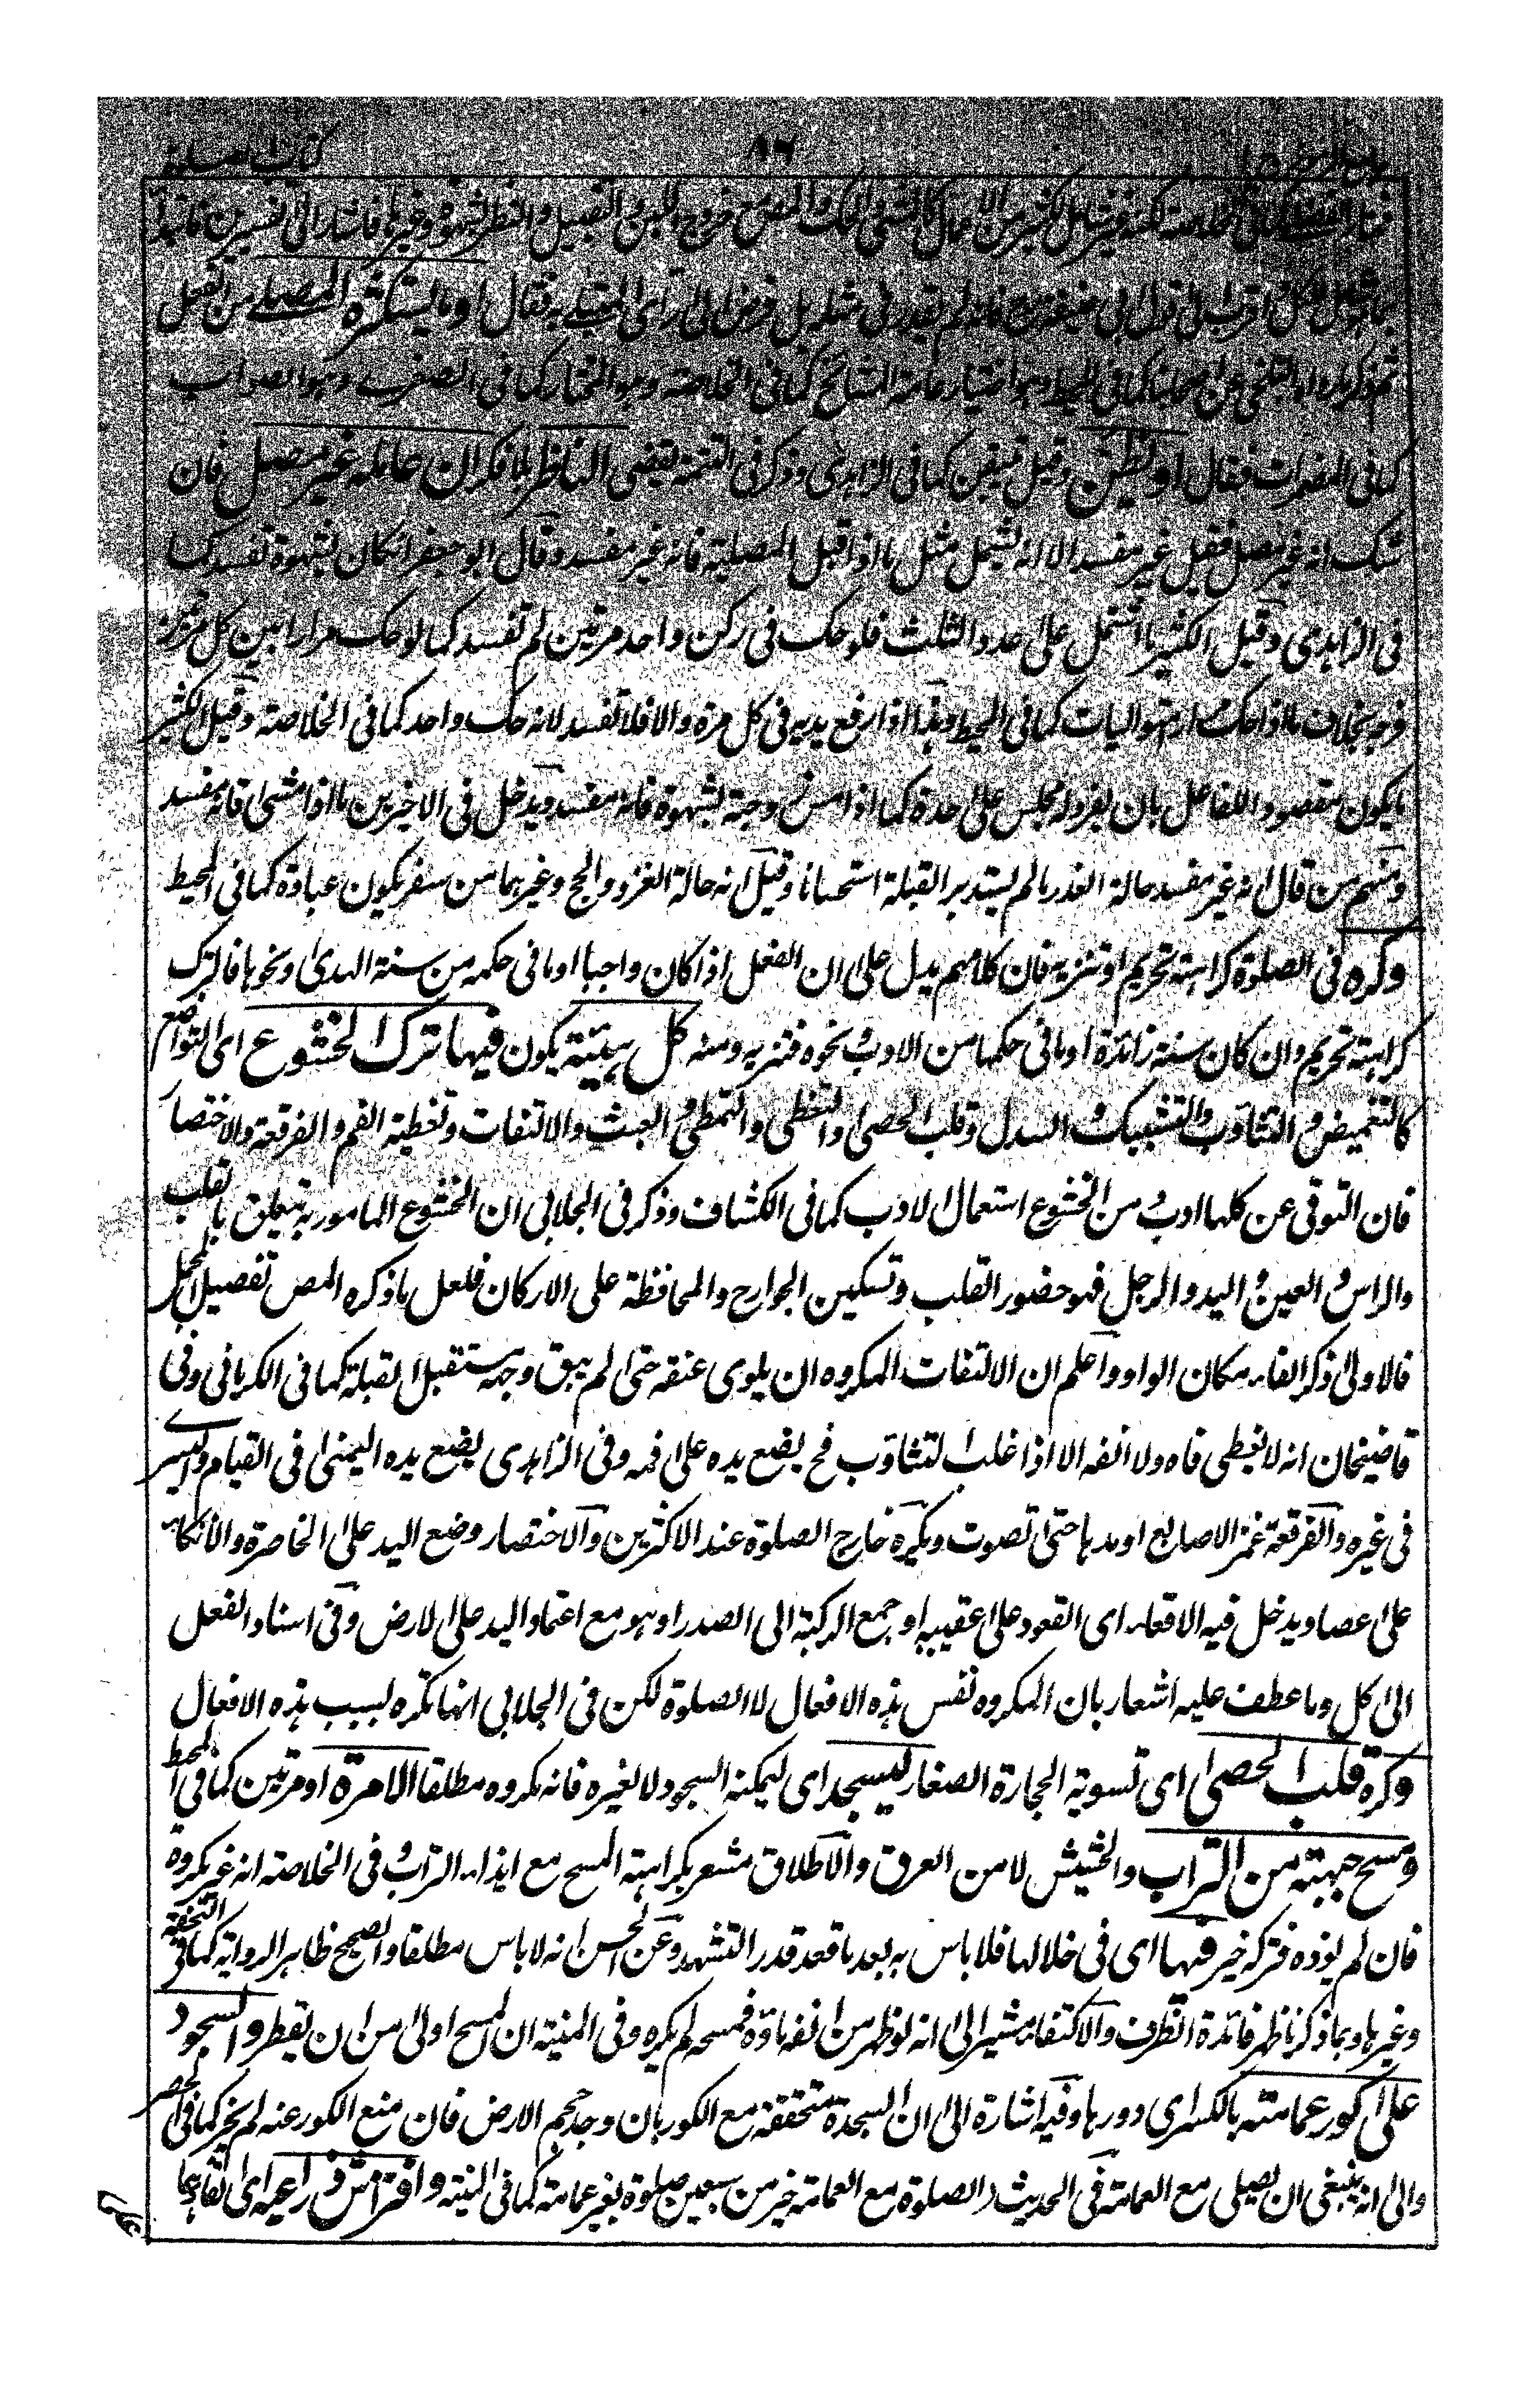 كتاب الصلوة
٨٦
كما في المضمرات فقال او يظن وقيل تيقن كما في الزاهدي وذكر في التتمة يقضي الناظر بلا فكر ان عامله غير مصل فان
شك انه غير مصل فقيل غير مفسد الا انه يشمل مثل ما اذا قبل المصلية فانه غير مفسد وقال ابو جعفر ان كان بشهوة تفسد كما
في الزاهدي وقيل الكثير ما اشتمل على عدد الثلث فلو حك في ركن واحد مرتين لم تفسد كما لو حك مرارا بين كل مرتين
فرجة بخلاف ما اذا حك مرارا متواليات كما في المحيط وهذا اذا رفع يديه في كل مرة والا فلا تفسد لانه حك واحد كما في الخلاصة وقيل الكثير
ما يكون مقصودا للفاعل بان يفرد له مجلس على حدة كما اذا مس زوجته بشهوة فانه مفسد ويدخل في الاخيرين ما اذا مشى فانه مفسد
ومنهم من قال انه غير مفسد حالة العذر ما لم يستدبر القبلة استحسانا وقيل انه حالة الغزو والحج وغيرهما من سفر يكون عبادة كما في المحيط
وكره في الصلوة كراهة تحريم او تنزيه فان كلامهم يدل على ان الفعل اذا كان واجبا او ما في حكمه من سنة الهدى ونحوها فالترك
كراهة تحريم وان كان سنة زائدة او ما في حكمها من الادب ونحوه فتنزيه ومنه كل هيئة يكون فيها ترك الخشوع اي التواضع
كالتغميض والتثاؤب والتشبيك والسدل وقلب الحصى والتخطي والتمطي والعبث والالتفات وتغطية الفم والفرقعة والاختصار
فان التوقي عن كلها ادب من الخشوع استعمال الادب كما في الكشاف وذكر في الجلابي ان الخشوع المامور به يتعلق بالقلب
والراس والعين واليد والرجل فهو حضور القلب وتسكين الجوارح والمحافظة على الاركان فلعل ما ذكره المص تفصيل المجمل
فالاولى ذكر الفاء مكان الواو واعلم ان الالتفات المكروه ان يلوي عنقه حتى لم يبق وجهه مستقبل القبلة كما في الكرماني وفي
قاضيخان انه لا يغطي فاه ولا انفه الا اذا غلب التثاؤب فح يضع يده على فمه وفي الزاهدي يضع يده اليمنى في القيام واليسرى
في غيره والفرقعة غمز الاصابع او مدها حتى تصوت ويكره خارج الصلوة عند الاكثرين والاختصار وضع اليد على الخاصرة والاتكاء
على عصا ويدخل فيه الاقعاء اي القعود على عقبيه او جمع الركبة الى الصدر او هو مع اعتماد اليد على الارض وفي اسناد الفعل
الى كل وما عطف عليه اشعار بان المكروه نفس هذه الافعال لا الصلوة لكن في الجلابي انها تكره لسبب هذه الافعال
وكره قلب الحصى اي تسوية الحجارة الصغار ليسجد اي ليمكنه السجود لا لغيره فانه مكروه مطلقا الا مرة او مرتين كما في المحيط
ومسح جبهته من التراب والحشيش لا من العرق والاطلاق مشعر بكراهة المسح مع ايذاء التراب وفي الخلاصة انه غير مكروه
فان لم يوذه فتركه خير فيها اي في خلالها فلا باس به بعد ما قعد قدر التشهد وعن الحسن انه لا باس مطلقا والصحيح ظاهر الرواية كما في التحفة
وغيرها وبما ذكرنا ظهر فائدة الظرف والاكتفاء مشير الى انه لو ظهر من انفه ماؤه فمسحه لم يكره وفي المنية ان المسح اولى من ان يقطر والسجود
على كور عمامته بالكسر اي دورها وفيه اشارة الى ان السجدة متحققة مع الكور بان وجد حجم الارض فان منع الكور عنه لم يجز كما في الحصر
والى انه ينبغي ان يصلي مع العمامة في الحديث الصلوة مع العمامة خير من سبعين صلوة بغير عمامة كما في المنية وافتراش ذراعيه اي القاءهما